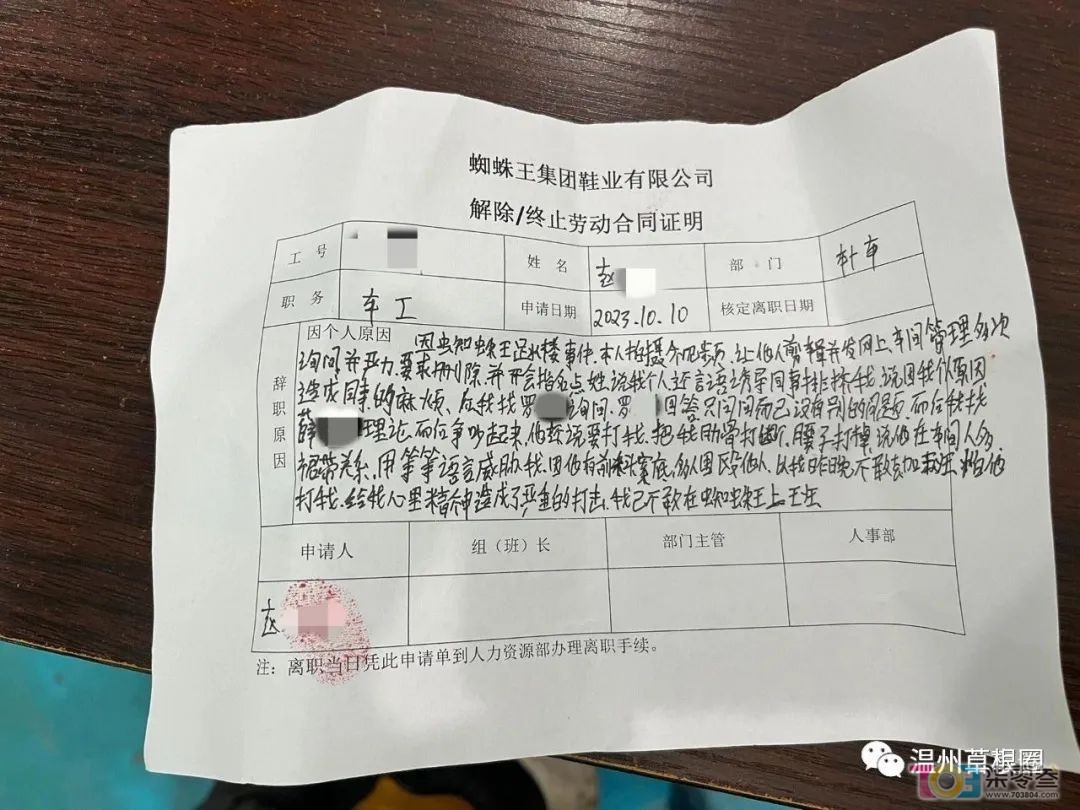 蜘蛛王集团鞋业有限公司
解除/终止劳动合同证明
工号 姓名 赵 部门 针车
职务 车工 申请日期 2023.10.10 核定离职日期
辞职原因
因个人原因 因蜘蛛王跳楼事件,本人拍摄个视频,让他人剪辑并发网上,车间管理多次
询问,并严力要求删除,并开会指名点姓说我个人,还言语诱导同事排挤我,说因我个原因
造成同事的麻烦,后我找罗 询问,罗 回答只问问而已没有别的问题,而后我找
薛 理论,而后争吵起来,他还说要打我,把我肋骨打断,腰子打掉,说他在车间人多
裙带关系,用等等语言威胁我,因他有前科案底,多人因 殴他人,以我昨晚不敢去加 班,怕他
打我,给我心里精神造成了严重的打击,我已不敢在蜘蛛王上班
申请人 组(班)长 部门主管 人事部
赵
注:离职当日凭此申请单到人力资源部办理离职手续。
温州草根圈
703
柒零叁
www.703804.com